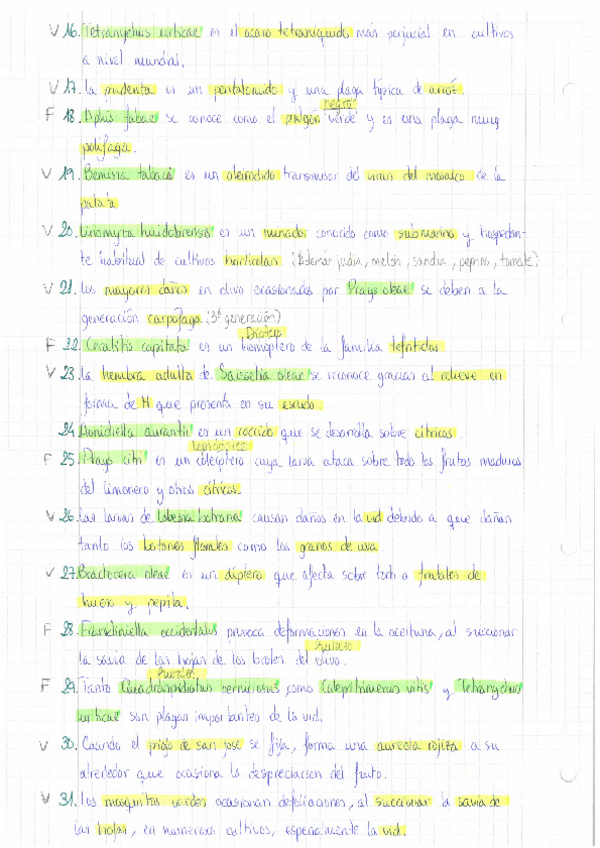 V 16. Tetranychus urticae es el acaro tetraniquido más perjucial en cultivos
a nivel mundial.
V 17. La pudenta es un pentatomido y una plaga típica de arroz
negro
F 18. Aphis fabae se conoce como el pulgón verde y es una plaga muy
polífaga.
V 19. Bemisia tabaci es un aleirodido transmisor del virus del mosaico de la
patata
V 20. Liriomyza huidobrensis es un minador conocido como submarino y hospedan-
te habitual de cultivos hortícolas (Además judía, melón, sandía, pepino, tomate)
V 21. Los mayores daños en olivo ocasionados por Prays oleae se deben a la
generación carpófaga (3ª generación)
Díptero
F 22. Ceratitis capitata es un homóptero de la familia tefritidos
V 23. La hembra adulta de Saissetia oleae se reconoce gracias al relieve en
forma de H que presenta en su escudo.
24. Aonidiella aurantii es un coccido que se desarrolla sobre cítricos.
Lepidóptero
F 25. Prays citri es un coleóptero cuya larva ataca sobre todo los frutos maduros
del limonero y otros cítricos.
V 26. Las larvas de Lobesia botrana causan daños en la vid debido a que dañan
tanto los botones florales como los granos de uva
V 27. Bractocera oleae es un díptero que afecta sobre todo a frutales de
hueso y pepita.
F 28. Frankliniella occidentalis provoca deformaciones en la aceituna, al succionar
la savia de las hojas de los brotes del olivo.
Frutales
F 29. Tanto Quadraspidiotus perniciosus como Calepitrimerus vitis y Tetranychus
urticae son plagas importantes de la vid.
V 30. Cuando el piojo de san josé se fija, forma una aureola rojiza a su
alrededor que ocasiona la despreciacion del fruto.
V 31. Los mosquitos verdes ocasionan defoliaciones, al succionar la savia de
las hojas, en numerosos cultivos, especialmente la vid.